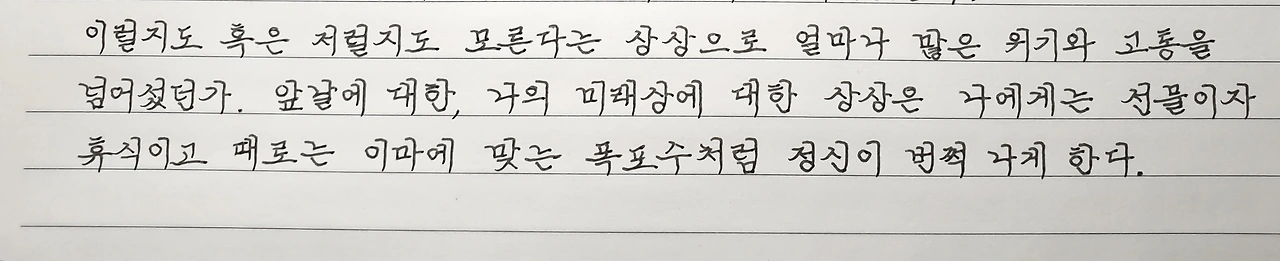 이럴지도 혹은 저럴지도 모른다는 상상으로 얼마나 많은 위기와 고통을
넘어섰던가. 앞날에 대한, 나의 미래상에 대한 상상은 나에게는 선물이자
휴식이고 때로는 이마에 맞는 폭포수처럼 정신이 번쩍 나게 한다.